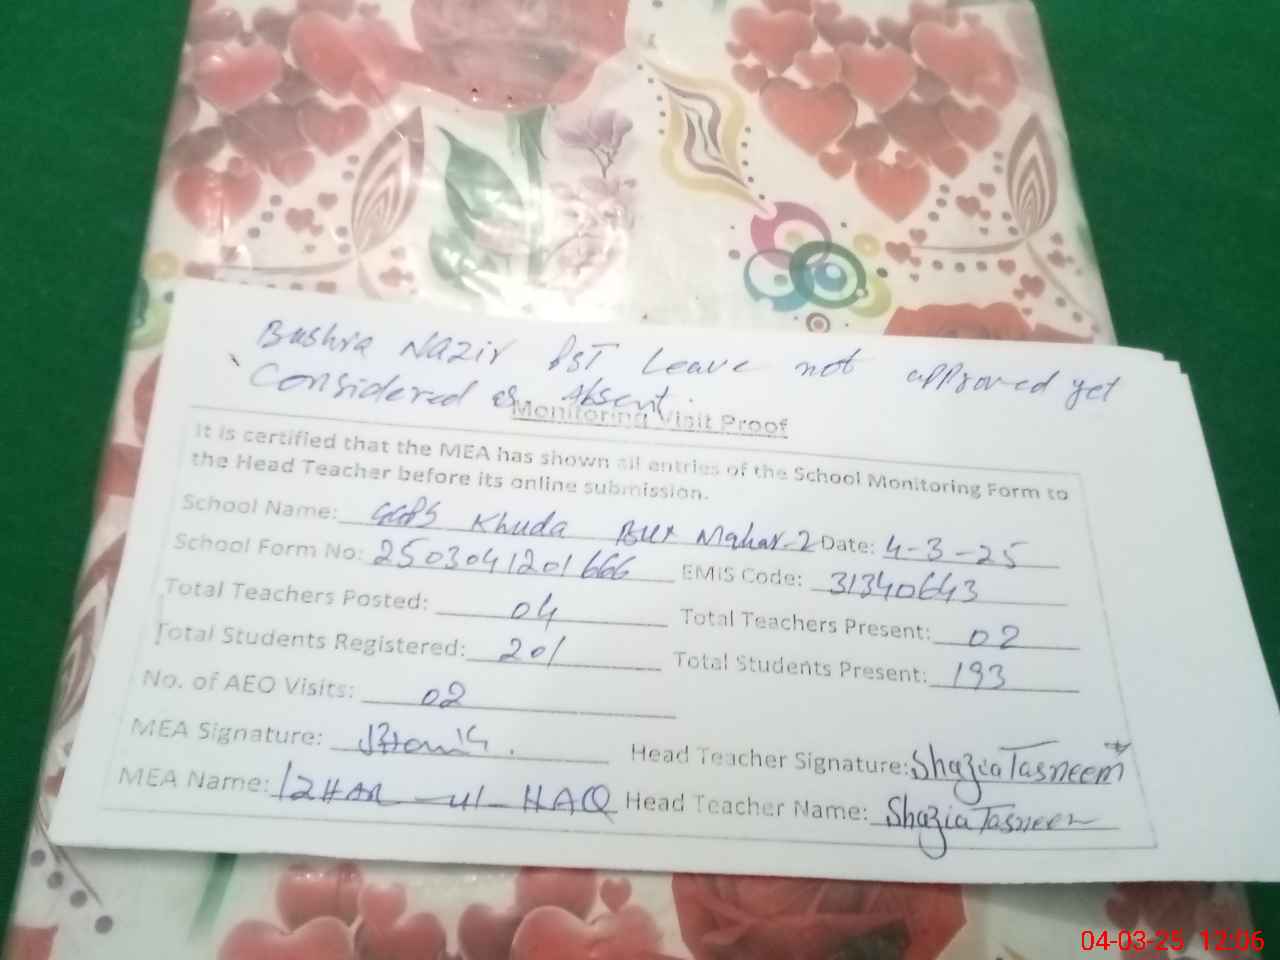 Bushra Nazir PST Leave not approved yet
Considered as Absent.
Monitoring Visit Proof
It is certified that the MEA has shown all entries of the School Monitoring Form to
the Head Teacher before its online submission.
School Name: GGPS Khuda Bux Mahar-2 Date: 4-3-25
School Form No: 2503041201666 EMIS Code: 31340643
Total Teachers Posted: 04 Total Teachers Present: 02
Total Students Registered: 201 Total Students Present: 193
No. of AEO Visits: 02
MEA Signature: Head Teacher Signature: Shazia Tasneem
MEA Name: IZHAR-ul-HAQ Head Teacher Name: Shazia Tasneem
04-03-25 12:06